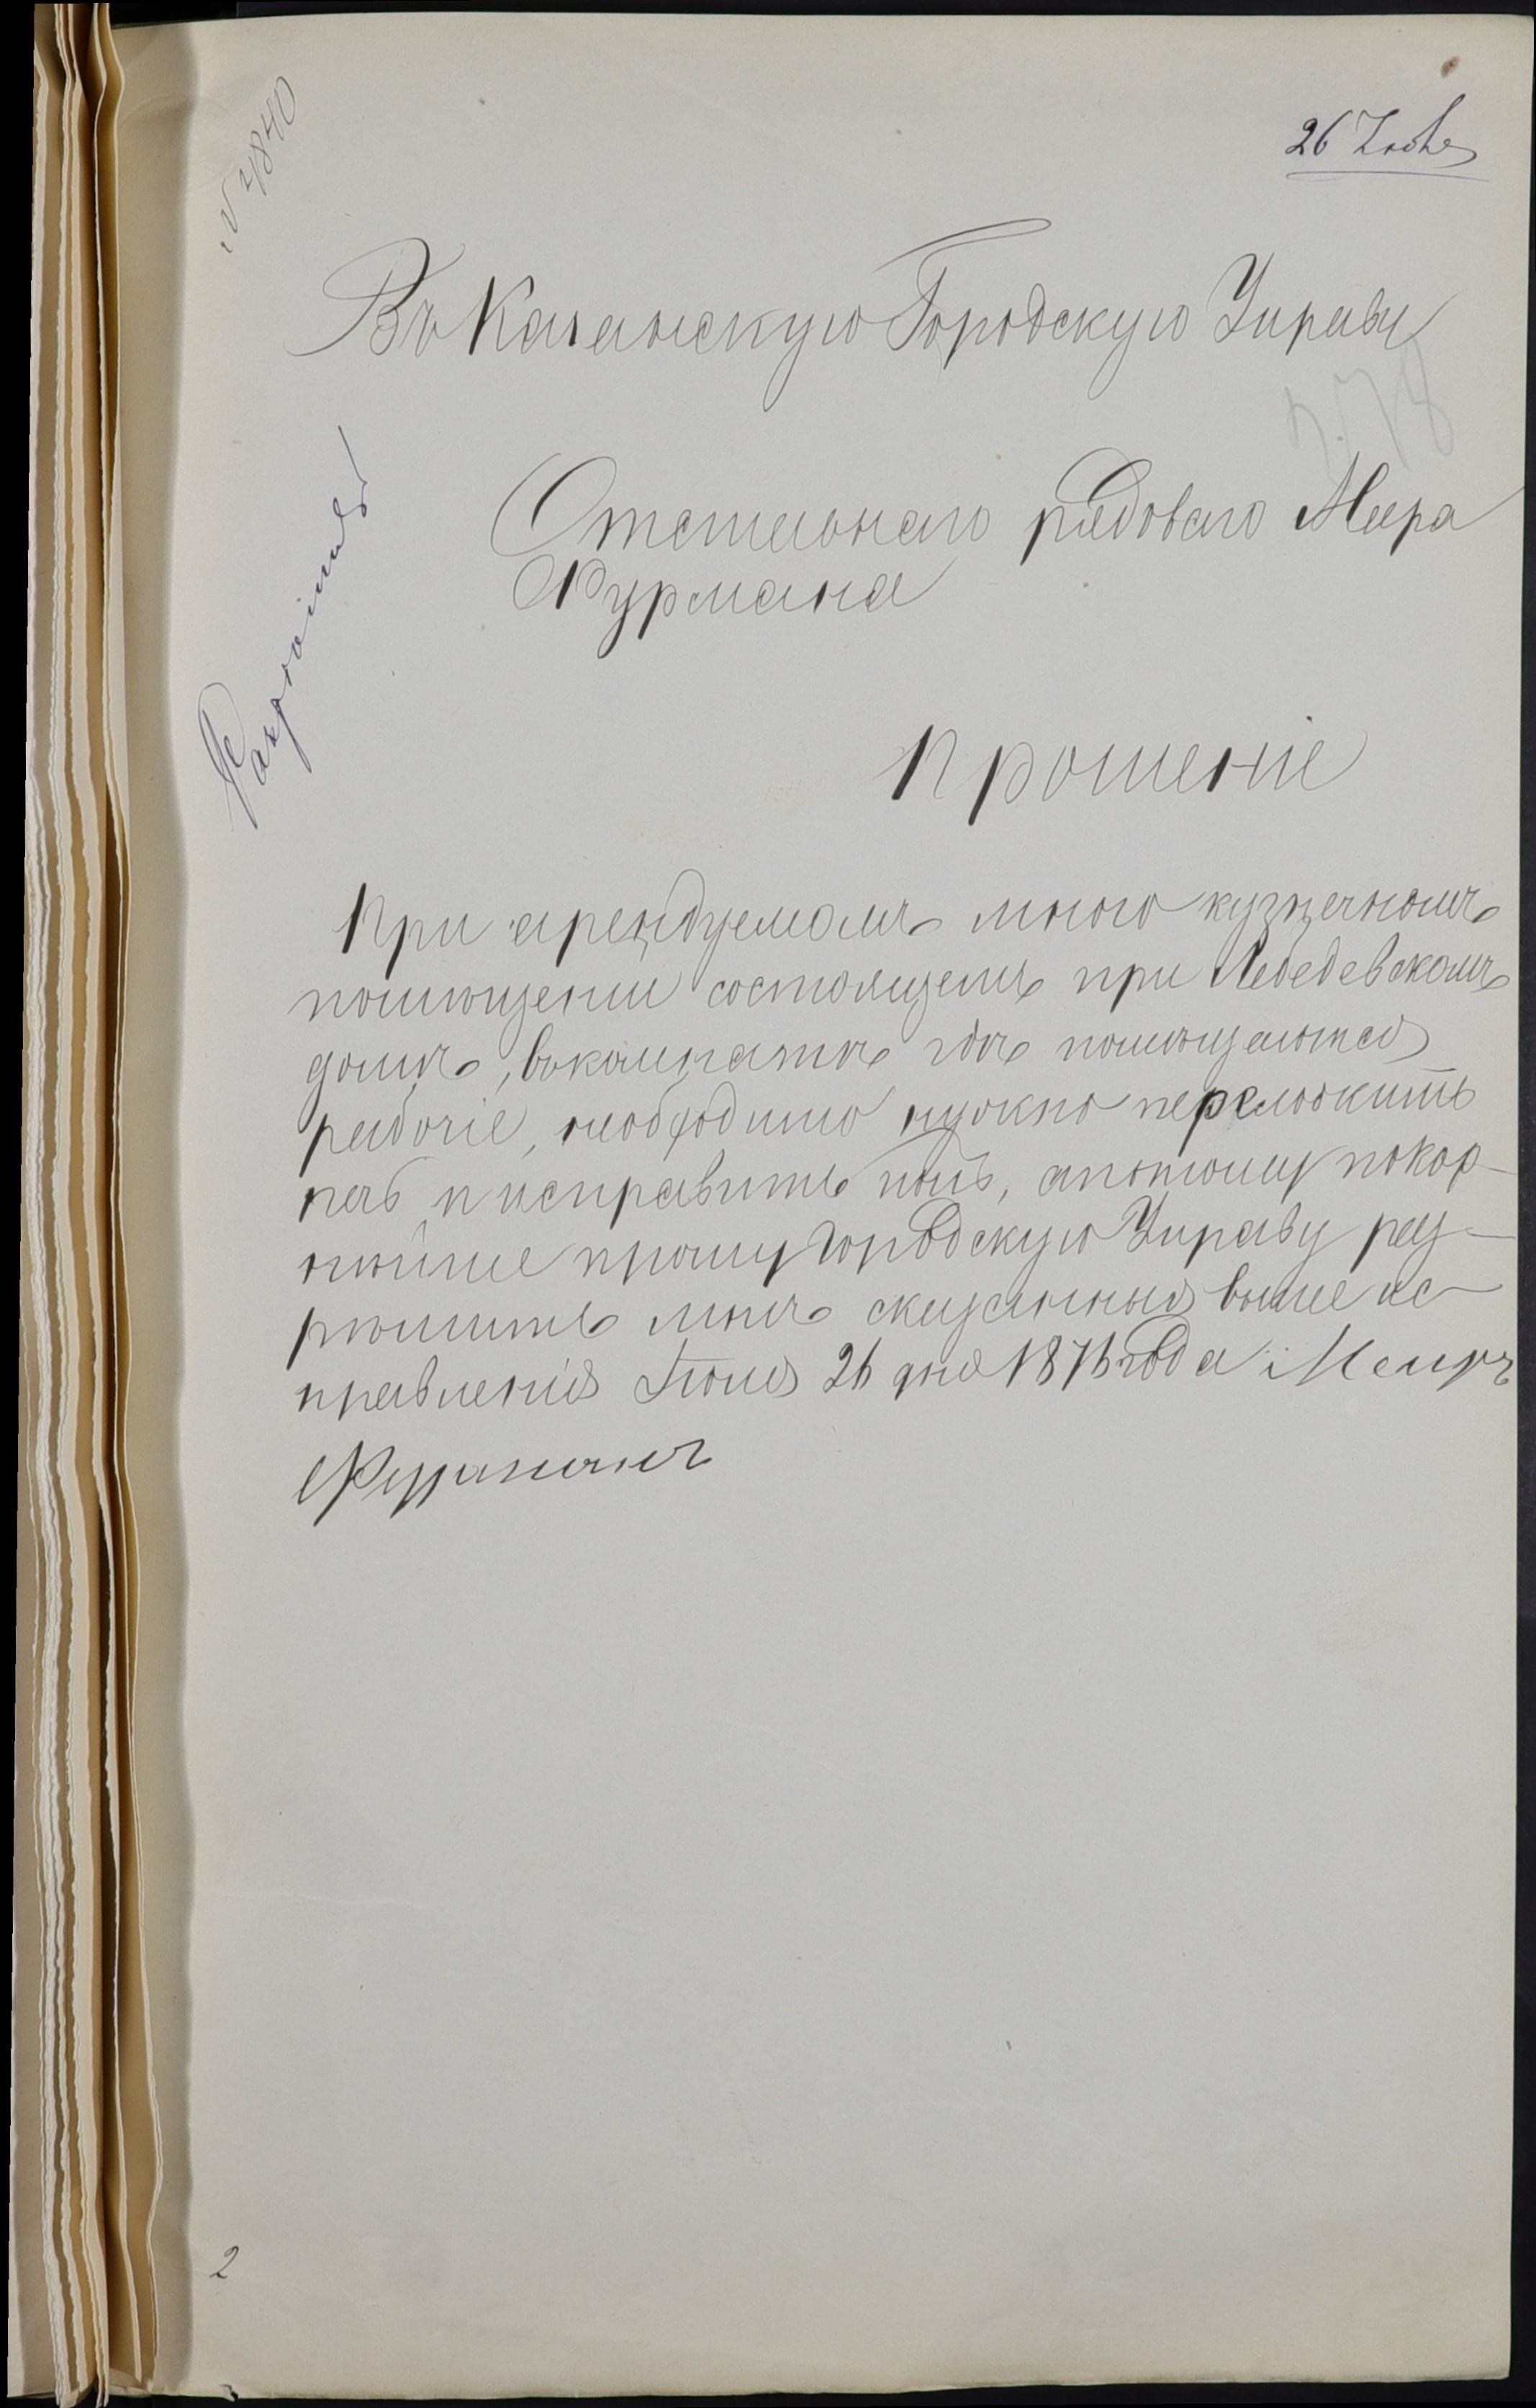 № 4840
26 Іюля
Въ Казанскую Городскую Управу
Отставнаго рядоваго Меера
Фурмана
Разрѣшить
Прошеніе
При арендуемомъ мною кузнечномъ
помѣщеніи состоящемъ при Лебедевскомъ
домѣ, въ комнатѣ гдѣ помѣщаются
рабочіе, необходимо нужно переложить
печь и исправить полъ, а потому покор-
нѣйше прошу Городскую Управу раз-
рѣшить мнѣ сказанныя выше ис-
правленія Іюля 26 дня 1876 года Меиръ
Фурманъ
2